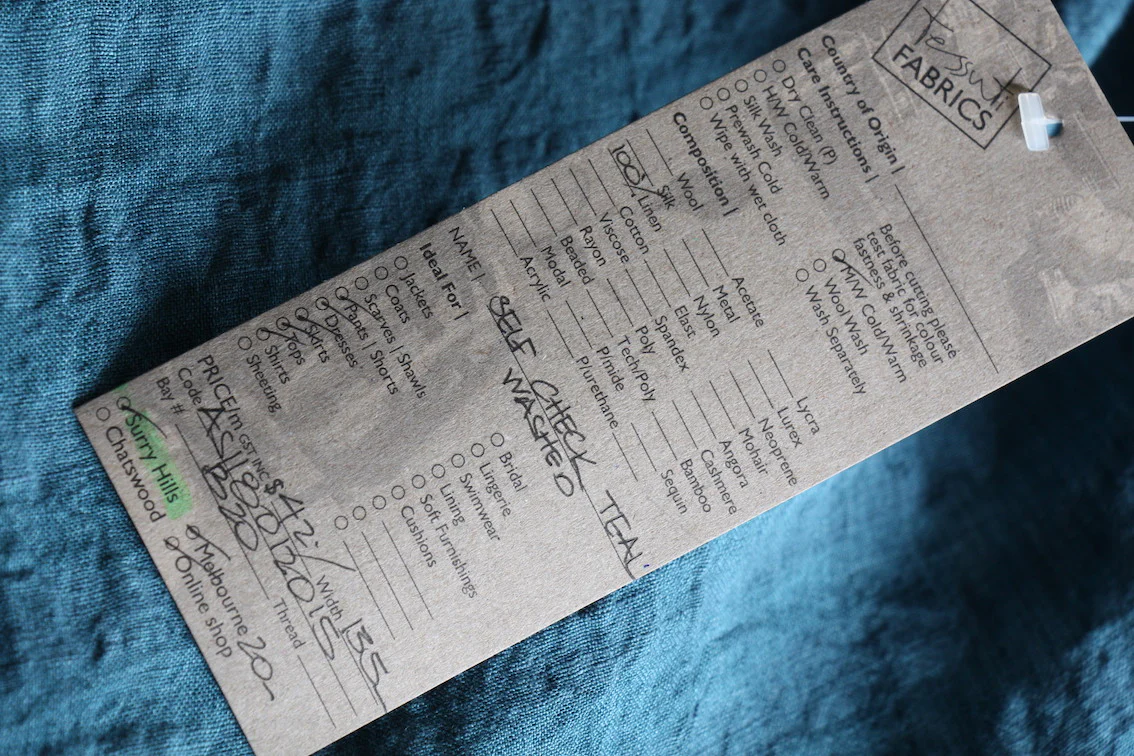 Tessuti
FABRICS
Country of Origin |
Care Instructions |
Dry Clean (P)
H/W Cold/Warm
Silk Wash
Prewash Cold
Wipe with wet cloth
Before cutting please
test fabric for colour
fastness & shrinkage
M/W Cold/Warm
Wool Wash
Wash Separately
Composition |
Wool
Silk
100% Linen
Cotton
Viscose
Rayon
Beaded
Modal
Acrylic
Acetate
Metal
Nylon
Elast
Spandex
Poly
Tech/Poly
P/mide
P/urethane
Lycra
Lurex
Neoprene
Mohair
Angora
Cashmere
Bamboo
Sequin
NAME | SELF CHECK TEAL
WASHED
Ideal For |
Jackets
Coats
Scarves | Shawls
Pants | Shorts
Dresses
Skirts
Tops
Shirts
Sheeting
Bridal
Lingerie
Swimwear
Lining
Soft Furnishings
Cushions
PRICE/m GST INC $42./ Width 135
Code
Bay # B20 Thread
Surry Hills
Chatswood
Melbourne 20
Online shop